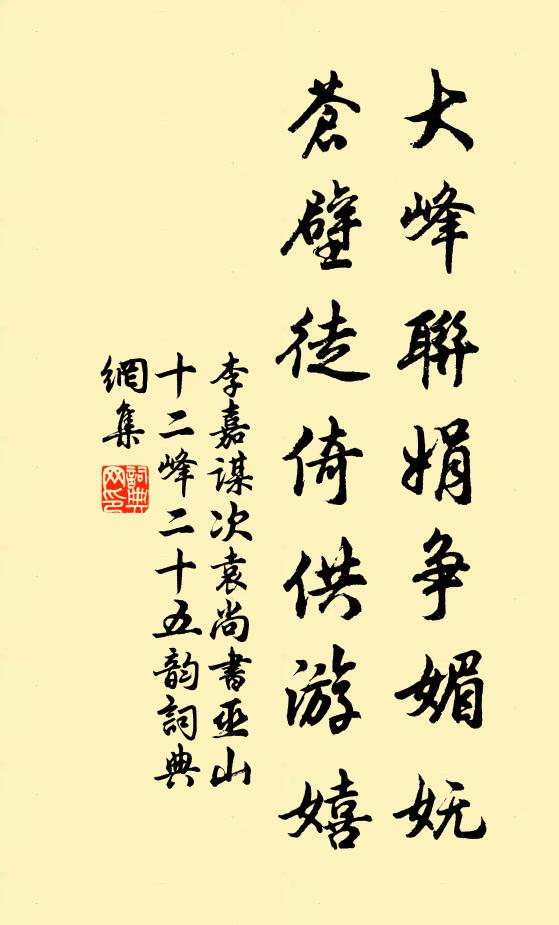 大峰聯娟争媚妩
蒼壁徒倚供游嬉
李嘉謀次袁尚書巫山
十二峰二十五韵詞典
網集
詞典網印